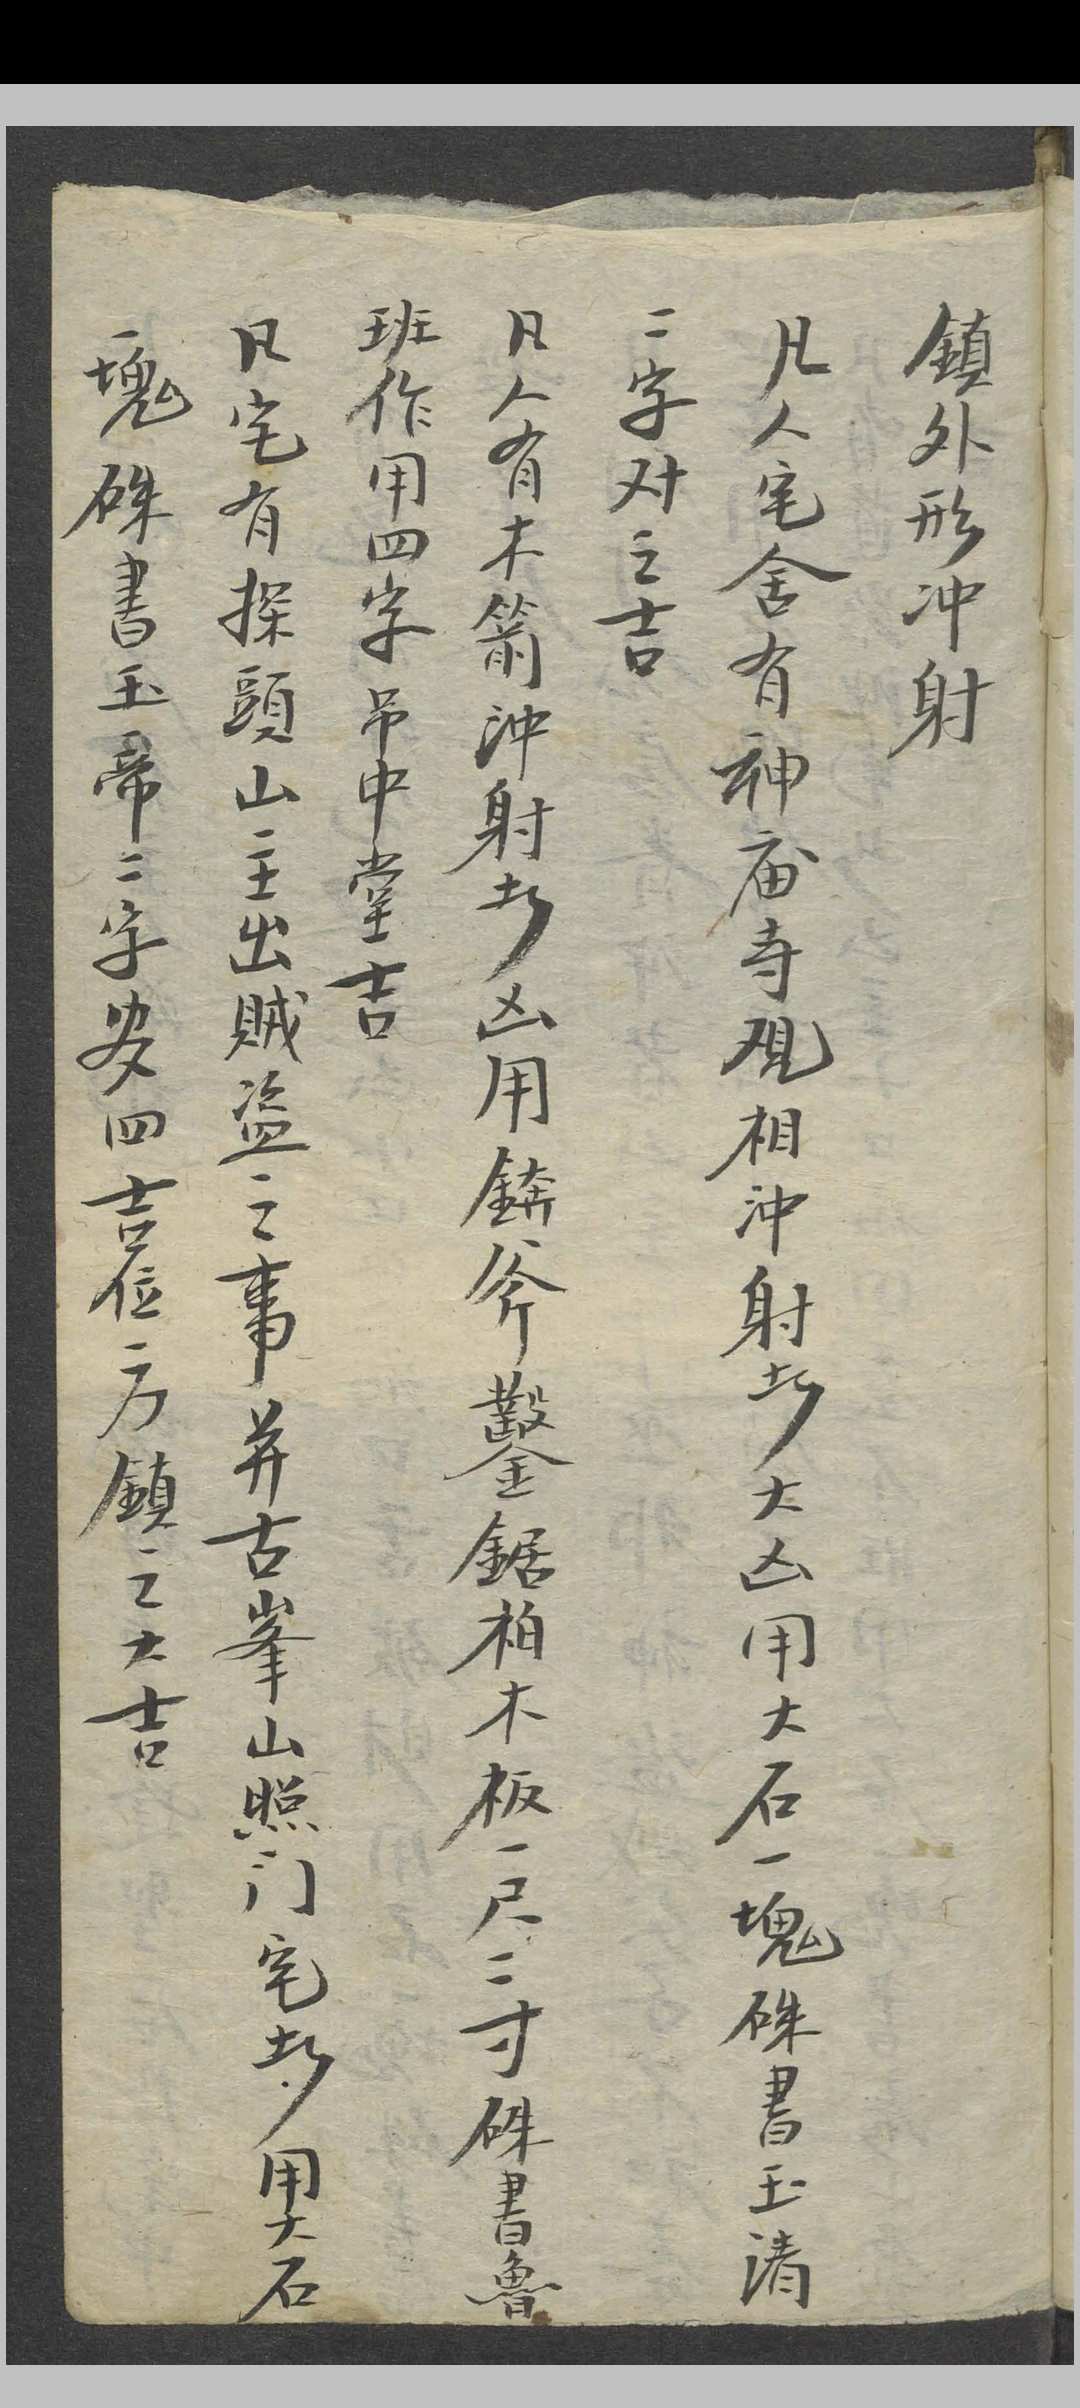 鎮外形冲射
凡人宅舍有神庙寺观相沖射者大凶用大石一塊硃書玉清
二字对之吉
凡人有木箭沖射者凶用錛斧鑿鋸柏木板一尺二寸硃書魯
班作用四字吊中堂吉
凡宅有探頭山主出賊盗之事并古峯山照门宅者用大石
一塊硃書玉帝二字安四吉位方鎮之大吉